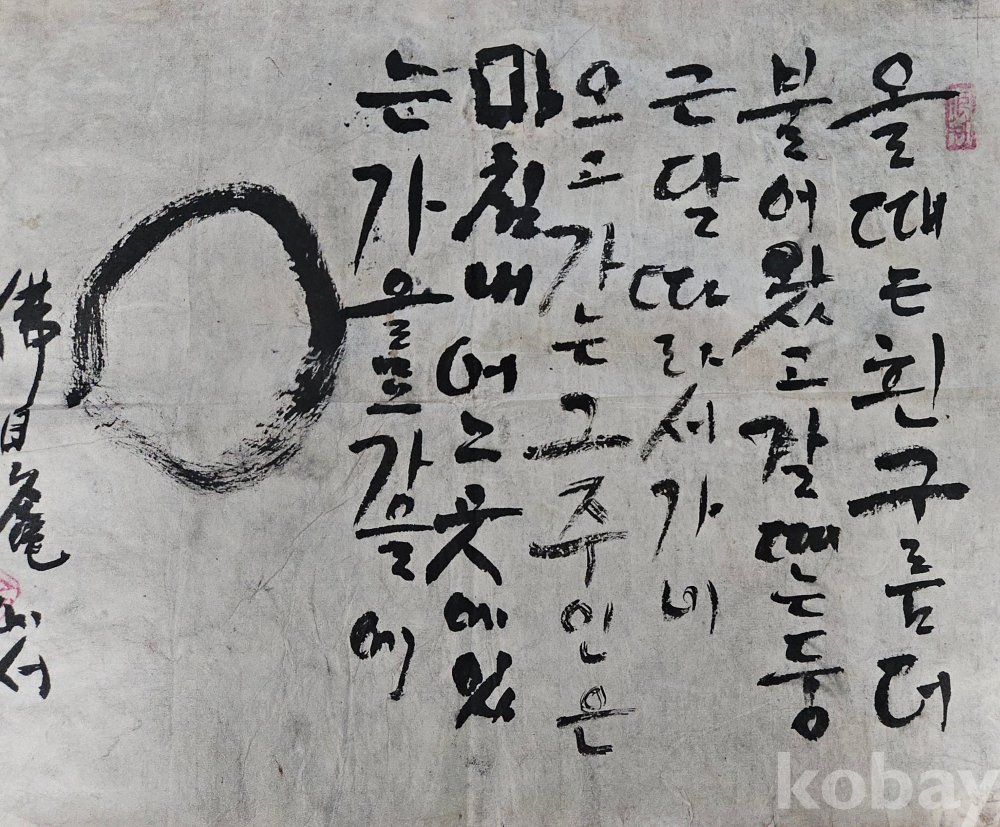 올때는흰구름더
불어왔고갈때는둥
근달따라서가네
오고가는그주인은
마침내어느곳에있
는가을묘가을에
佛日庵
kobay